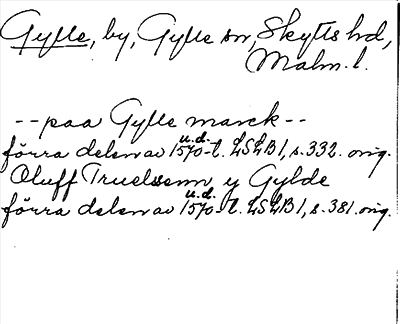 Gylle, by, Gylle sn, Skytts hd,
Malm. l.
-- paa Gylle marck --
u.d.
förra delen av 1570-t. LSLB1, s. 332. orig.
Oluff Truelssenn y Gylde
u.d.
förra delen av 1570-t. LSLB1, s. 381. orig.